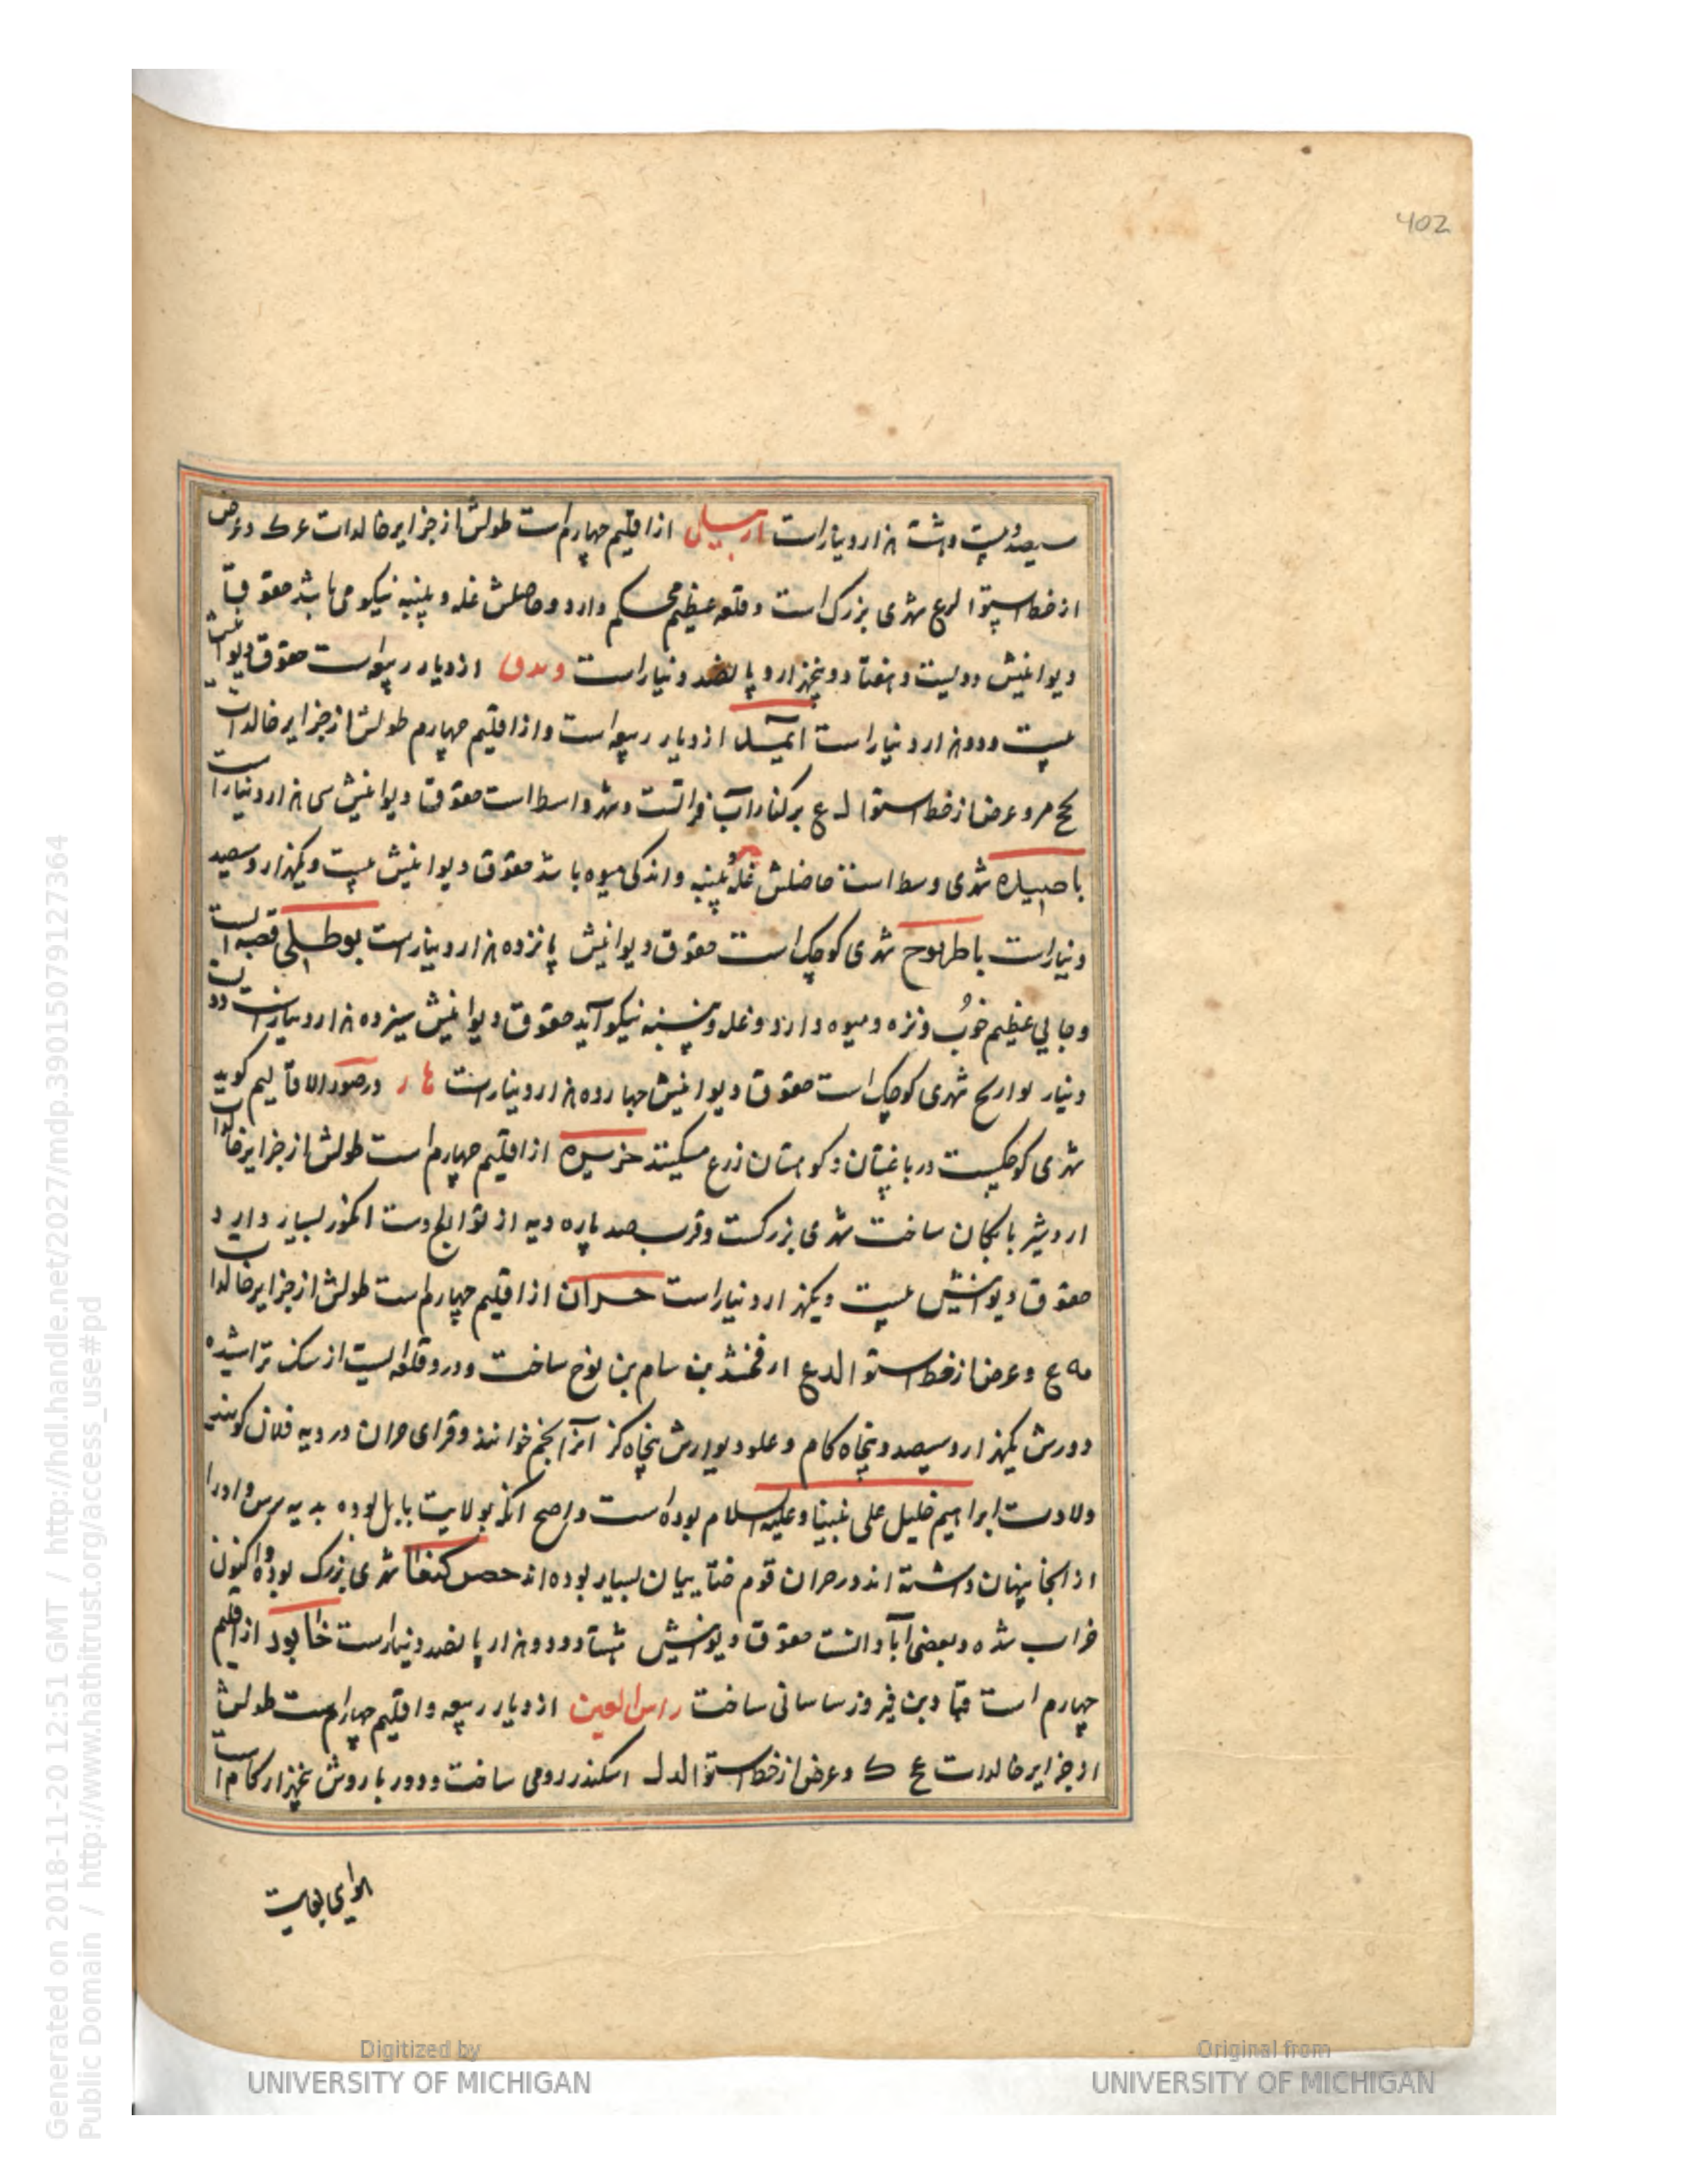 402
سیصد و بیست و هشت هزار دینار است اربیل از اقلیم چهارم است طولش از جزایر خالدات عرک و عرض
از خط استوا لرع شهری بزرک است و قلعه عظیم محکم دارد و حاصلش غله و پنبه نیکو می باشد حقوق
دیوانیش دویست و هفتاد و پنجهزار و پانصد دینار است از دیار ربیعه است حقوق دیوانیش
بیست و دو هزار دینار است از دیار ربیعه است و از اقلیم چهارم طولش از جزایر خالدات
و عرض از خط استوا لد ع بر کنار آب فراتست و شهر واسط است حقوق دیوانیش سی هزار دینار است
شهری وسط است حاصلش غله و پنبه و اندکی میوه باشد حقوق دیوانیش بیست و یکهزار و سیصد
دینار است شهری کوچک است حقوق دیوانیش پانزده هزار دینار است بوطلی قصبه است
و جایی عظیم خوب و نزه و میوه دارد و غله و پنبه نیکو آید حقوق دیوانیش سیزده هزار دینار است
دینار شهری کوچک است حقوق دیوانیش چهارده هزار دینار است در صور الاقالیم کوید
شهری کوچکیست در باغستان و کوهستان زرع میکنند از اقلیم چهارم است طولش از جزایر خالدات
اردشیر بابکان ساخت شهری بزرکست و قرب صد پاره دیه از توابع اوست انکور بسیار دارد
حقوق دیوانیش بیست و یکهزار دینار است حران از اقلیم چهارم است طولش از جزایر خالدات
عه ع و عرض از خط استوا لد ع ارفخشد بن سام بن نوح ساخت و درو قلعه ایست از سنک تراشیده
دورش یکهزار و سیصد و پنجاه کام و علو دیوارش پنجاه کز آنرا خوانند و قرای حران در دیه فلان کویند
ولادت ابراهیم خلیل علی نبینا و علیه السلام بوده است و اصح انکه بولایت بابل بوده بدیه و او را
از انجا پنهان داشته اند در حران قوم بسیار بوده اند حصن کیفا شهری بزرک بوده و اکنون
خراب شده و بعضی آبادانست حقوق دیوانیش هشتاد و دو هزار پانصد دینار است خابور از اقلیم
چهارم است قباد بن فیروز ساسانی ساخت راس العین از دیار ربیعه و اقلیم چهارم است طولش
از جزایر خالدات عح ک و عرض از خط استوا لد ل اسکندر رومی ساخت و دور باروش پنجهزار کام است
هوای بغایت
Generated on 2018-11-20 12:51 GMT / http://hdl.handle.net/2027/mdp.39015079127364
Public Domain / http://www.hathitrust.org/access_use#pd
Digitized by
UNIVERSITY OF MICHIGAN
Original from
UNIVERSITY OF MICHIGAN